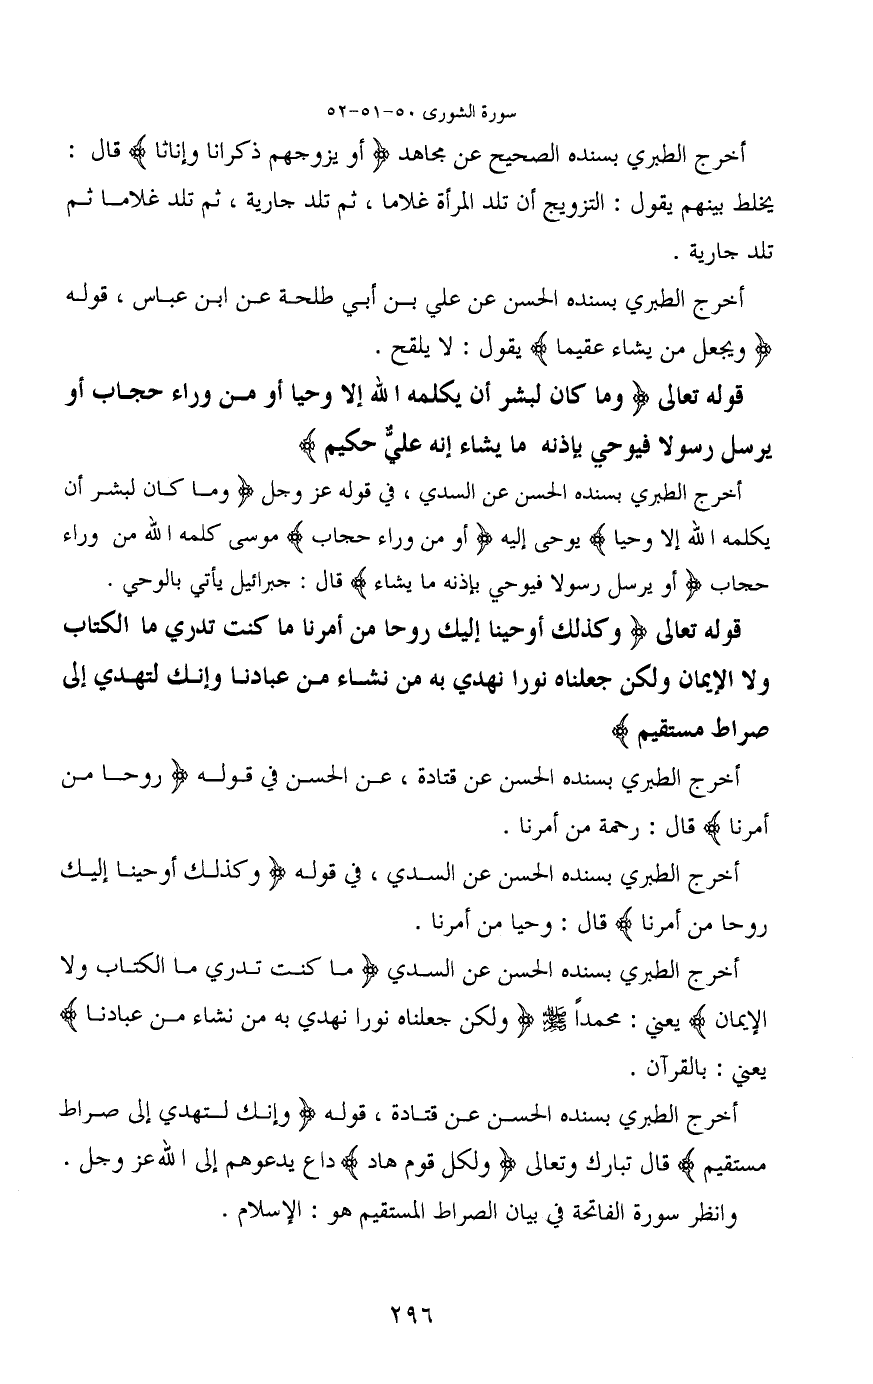 سورة الشورى ٥٠-٥١-٥٢
أخرج الطبري بسنده الصحيح عن مجاهد ﴿ أو يزوجهم ذكرانا وإناثا ﴾ قال :
يخلط بينهم يقول : التزويج أن تلد المرأة غلاما ، ثم تلد جارية ، ثم تلد غلاما ثم
تلد جارية .
أخرج الطبري بسنده الحسن عن علي بن أبي طلحة عن ابن عباس ، قوله
﴿ ويجعل من يشاء عقيما ﴾ يقول : لا يلقح .
قوله تعالى ﴿ وما كان لبشر أن يكلمه الله إلا وحيا أو من وراء حجاب أو
يرسل رسولا فيوحي بإذنه ما يشاء إنه عليٌّ حكيم ﴾
أخرج الطبري بسنده الحسن عن السدي ، في قوله عز وجل ﴿ وما كان لبشر أن
يكلمه الله إلا وحيا ﴾ يوحى إليه ﴿ أو من وراء حجاب ﴾ موسى كلمه الله من وراء
حجاب ﴿ أو يرسل رسولا فيوحي بإذنه ما يشاء ﴾ قال : جبرائيل يأتي بالوحي .
قوله تعالى ﴿ وكذلك أوحينا إليك روحا من أمرنا ما كنت تدري ما الكتاب
ولا الإيمان ولكن جعلناه نورا نهدي به من نشاء من عبادنا وإنك لتهدي إلى
صراط مستقيم ﴾
أخرج الطبري بسنده الحسن عن قتادة ، عن الحسن في قوله ﴿ روحا من
أمرنا ﴾ قال : رحمة من أمرنا .
أخرج الطبري بسنده الحسن عن السدي ، في قوله ﴿ وكذلك أوحينا إليك
روحا من أمرنا ﴾ قال : وحيا من أمرنا .
أخرج الطبري بسنده الحسن عن السدي ﴿ ما كنت تدري ما الكتاب ولا
الإيمان ﴾ يعني : محمداً ﷺ ﴿ ولكن جعلناه نورا نهدي به من نشاء من عبادنا ﴾
يعني : بالقرآن .
أخرج الطبري بسنده الحسن عن قتادة ، قوله ﴿ وإنك لتهدي إلى صراط
مستقيم ﴾ قال تبارك وتعالى ﴿ ولكل قوم هاد ﴾ داع يدعوهم إلى الله عز وجل .
وانظر سورة الفاتحة في بيان الصراط المستقيم هو : الإسلام .
٢٩٦